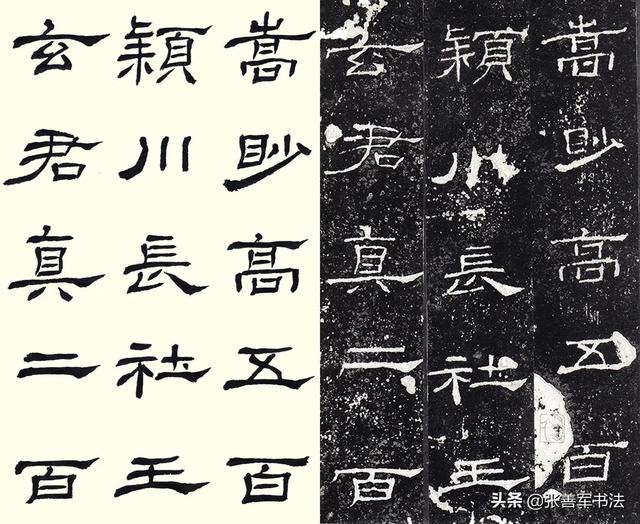 嵩眇高五百
穎川長社王
玄君真二百
嵩眇高五百
穎川長社王
玄君真二百
头条 @张善军书法